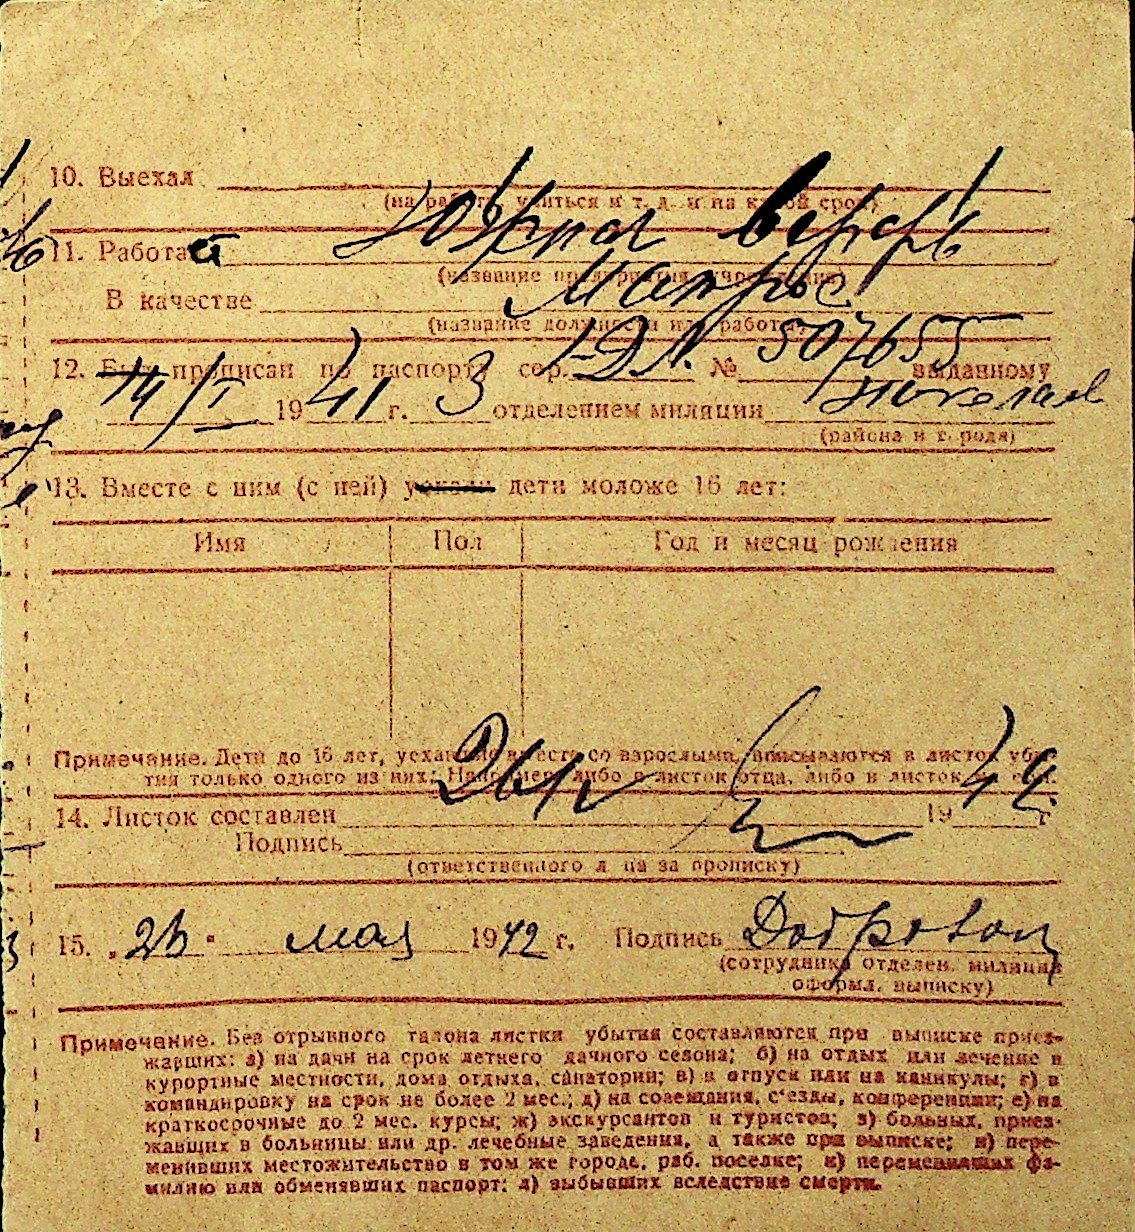 10. Выехал
(на работу, учиться и т. д. и на какой срок)
11. Работает Южная верфь
(название предприятия, учреждения)
В качестве Матрос
(название должности или работы)
12. Был прописан по паспорту сер. № 507655 выданному
14/I 1941 г. 3 отделением милиции
(района и города)
13. Вместе с ним (с ней) уехали дети моложе 16 лет:
Имя Пол Год и месяц рождения
Примечание. Дети до 16 лет, уехавшие вместе со взрослыми, вписываются в листок убы-
тия только одного из них: Например либо в листок отца, либо в листок матери.
14. Листок составлен 19 г.
Подпись
(ответственного лица за прописку)
15. „ " мая 1942 г. Подпись
(сотрудника отделен. милиции
оформл. выписку)
Примечание. Без отрывного талона листки убытия составляются при выписке приез-
жавших: а) на дачи на срок летнего дачного сезона; б) на отдых или лечение в
курортные местности, дома отдыха, санатории; в) в отпуск или на каникулы; г) в
командировку на срок не более 2 мес.; д) на совещания, с'езды, конференции; е) на
краткосрочные до 2 мес. курсы; ж) экскурсантов и туристов; з) больных, приез-
жавших в больницы или др. лечебные заведения, а также при выписке; и) пере-
менивших местожительство в том же городе, раб. поселке; к) переменивших фа-
милию или обменявших паспорт; л) выбывших вследствие смерти.